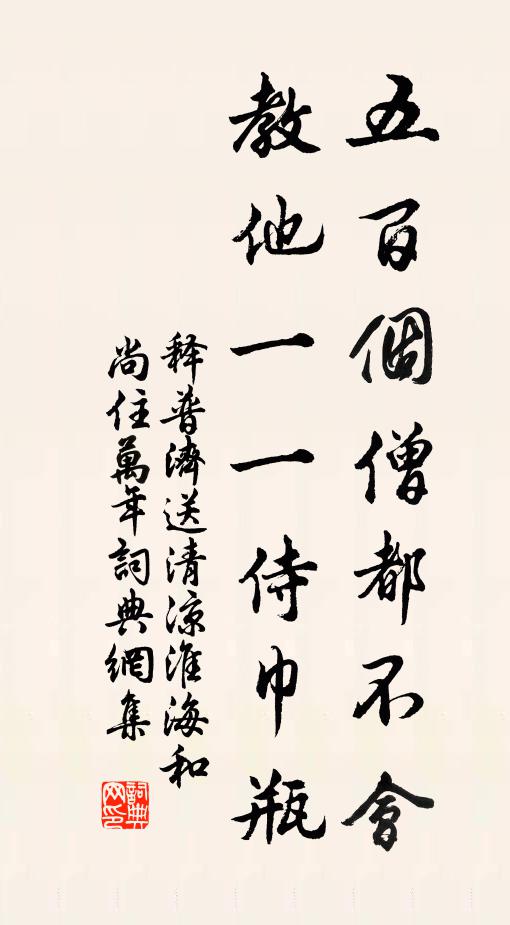 五百個僧都不會
教他一一侍巾瓶
释普濟送清涼淮海和
尚住萬年詞典網集
詞典网印